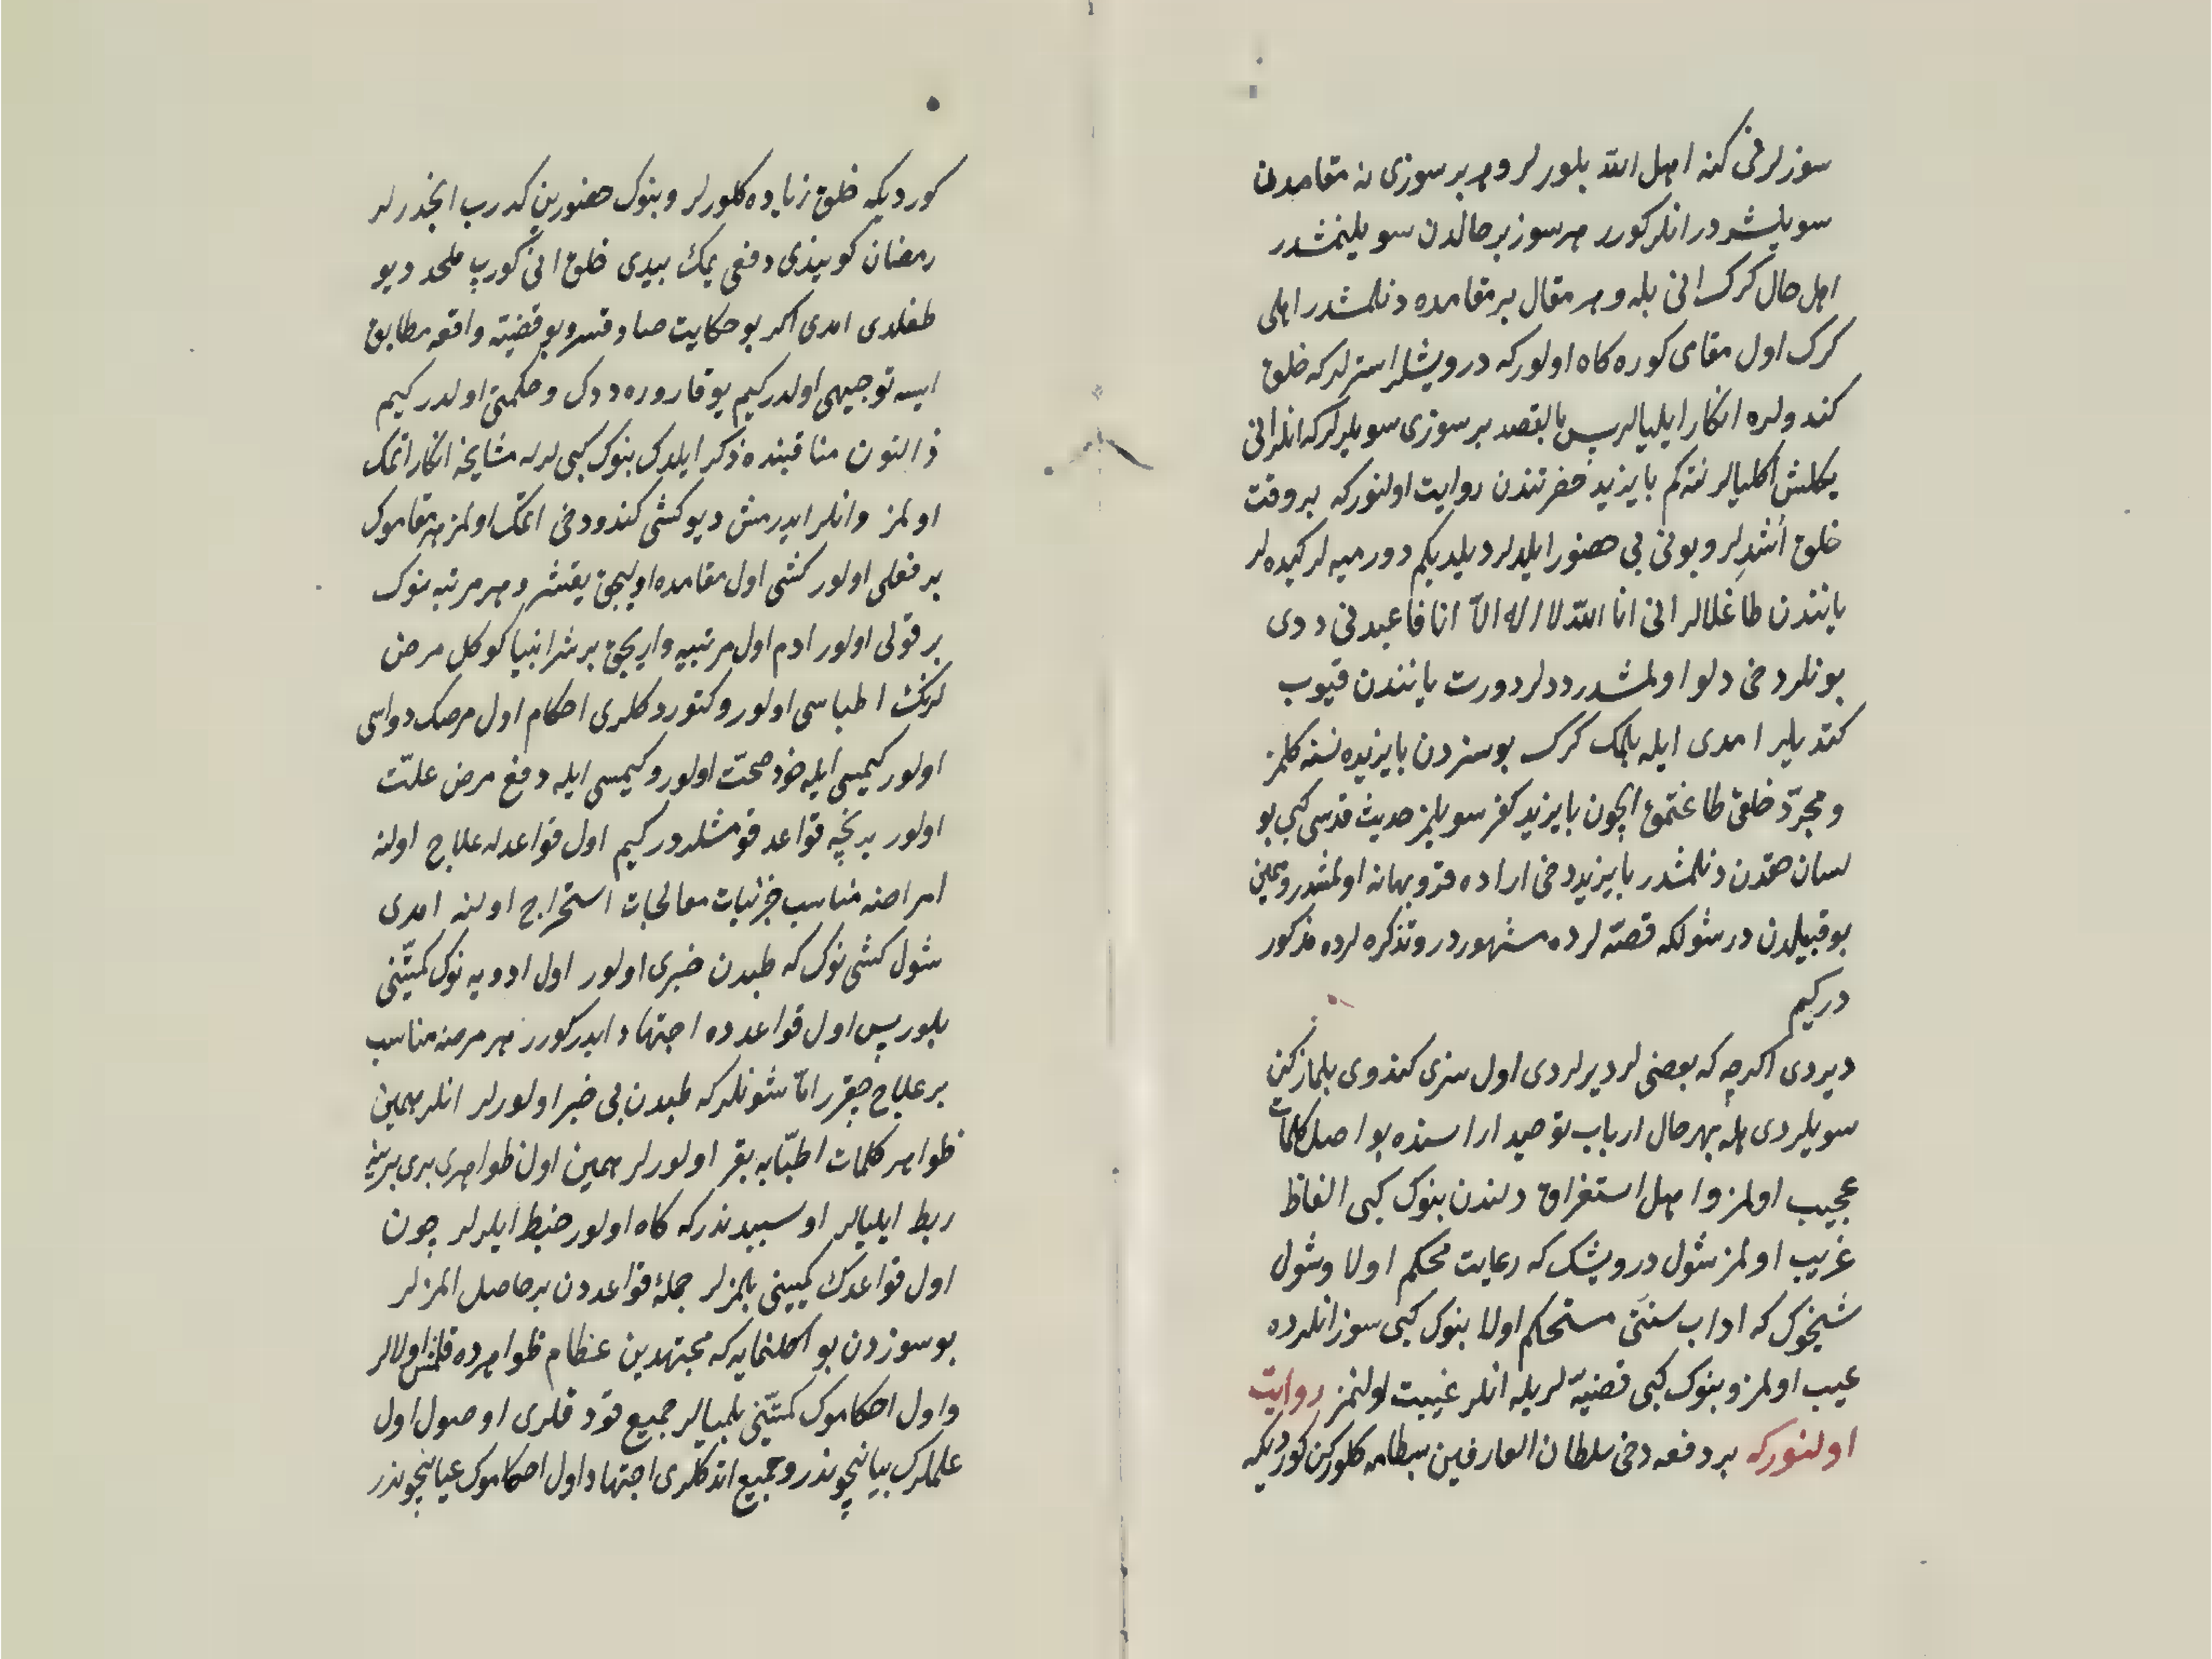 سوزلرنی کنه اهل الله بلورلر و هر بر سوزی نه مقامدن
سویلشدر انلر کورر هر سوز بر حالدن سویلنمشدر
اهل حال کرک انی بله و هر مقال بر مقامده دنلمشدر اهلی
کرک اول مقامی کوره کاه اولور که درویشلر استرلر که خلق
کندولره انکار ایلیالر پس بالقصد بر سوزی سویلرلر که انلر انی
یکلش اکلیالر نته کم بایزید حضرتندن روایت اولنور که بر وقت
خلق اُشدِلر و بونی بی حضور ایلدلر دیلدیکم دورمیه لر کیده لر
یانندن طاغلالر انی انا الله لا اله الّا انا فاعبدنی ددی
بونلر دخی دلو اولمشدر ددلر دورت یانندن قیوب
کتدیلر امدی ایله بلمک کرک بو سزدن بایزیده نسنه کلمز
و مجرّد خلق طاغتمغ ایچون بایزید کفر سویلمز حدیث قدسی کبی بو
لسان حقدن دنلمشدر بایزید دخی اراده قدو بهانه اولمشدر و همین
بو قبیلدن در شولکه قصّه لرده مشهوردر و تذکره لرده مذکور
در کیم
دیردی اکرچه که بعضی لر دیرلردی اول سزی کندوی بلماز کن
سویلردی هله بهر حال ارباب توحید اراسنده بو اصل کلمات
عجیب اولمز و اهل استغراق دلندن بنوک کبی الفاظ
غریب اولمز شول درویشک که رعایت محکم اولا و شول
شیخوک که اداب سنتی مستحکم اولا بنوک کبی سوز انلرده
عیب اولمز و بنوک کبی قضیّه لریله انلر غیبت اولنمز روایت
اولنور که بر دفعه دخی سلطان العارفین بسطامه کلورکن کوردیکه
کوردیکه خلق زیاده کلورلر و بنوک حضورین کدرب انجدرلر
رمضان کونیذی دفعی یمک ییدی خلق انی کورب ملحد دیو
طغلدی امدی اکر بو حکایت صادقسه و بو قضیّه واقعه مطابق
ایسه توجیهی اولدر کیم یوقاروره ددک و حکمتی اولدر کیم
ذالنون مناقبنده ذکر ایلدک بنوک کبی لرله مشایخه انکار اتمک
اولمز و انلر ایدرمش دیو کشی کندو دخی اتمک اولمز هر مقاموک
بر فعلی اولور کشی اول مقامده اولیجق یقشر و هر مرتبه نوک
بر قولی اولور ادم اول مرتبیه واریجق برشر انبیا کوکل مرض
لرنک اطباسی اولور و کتوردکلری احکام اول مرضک دواسی
اولور کیمسی ایله خود صحت اولور و کیمسی ایله دفع مرض علّت
اولور بر نچه قواعد قومشلردر کیم اول قواعدله علاج اولنه
امراضنه مناسب جزئیات معالجات استخراج اولنه امدی
شول کشی نوک که طبدن خبری اولور اول ادویه نوک کمیّتنی
بلور پس اول قواعدده اجتهاد ایدر کورر هر مرضه مناسب
بر علاج چقرر امّا شونلر که طبدن بی خبر اولورلر انلر همین
ظواهر کلمات اطبّایه بقر اولورلر همین اول ظواهری بری برینه
ربط ایلیالر او سببدندر که کاه اولور خبط ایلرلر چون
اول قواعدک کمیّتنی بلمزلر جملۀ قواعددن بر حاصل المزلر
بو سوزدن بو اکلنمایه که مجتهدین عظام ظواهرده قلمش اولالر
و اول احکاموک کمیّتنی بلمیالر جمیع قودقلری اوصول اول
علملرک بیانیچوندر و جمیع اتدکلری اجتهاد اول احکاموک عیانیچوندر